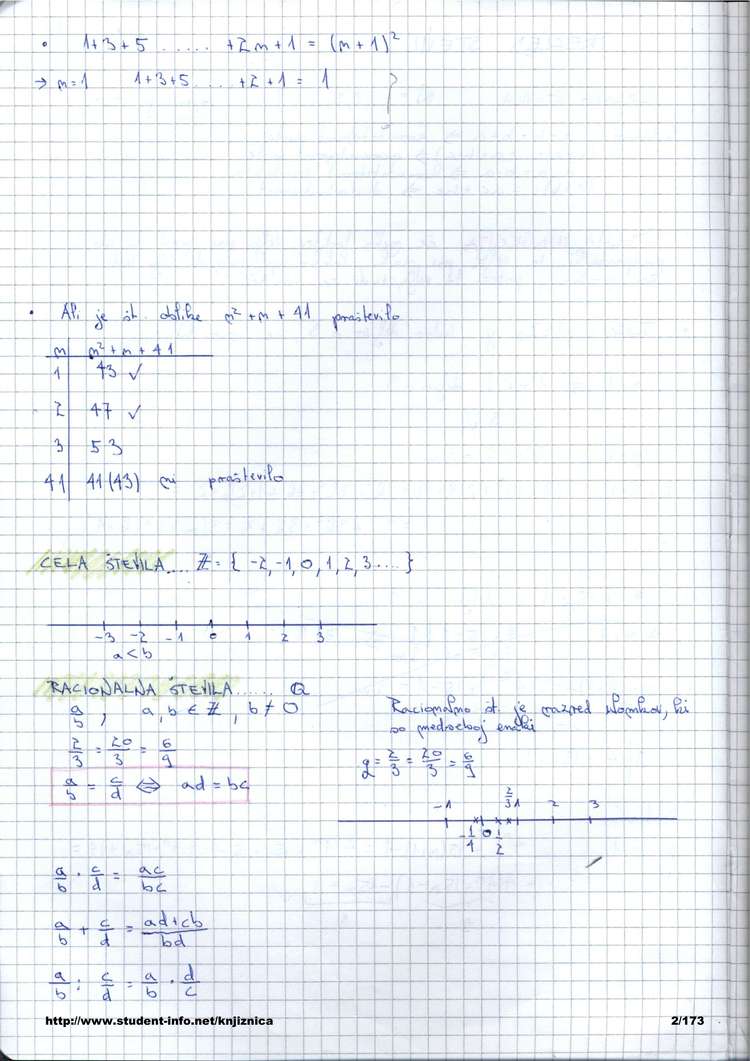 • 1+3+5 ..... +2n+1 = (n+1)²
→ n=1 1+3+5 .... +2+1 = 1 ?
• Ali je št. oblike n²+n+41 praštevilo
n | n²+n+41
1 | 43 ✓
2 | 47 ✓
3 | 53
41 | 41(43) ni praštevilo
CELA ŠTEVILA.... ℤ = { -2,-1,0,1,2,3....}
-3 -2 -1 0 1 2 3
a<b
RACIONALNA ŠTEVILA...... Q
a/b, a,b ∈ ℤ, b≠0
2/3 = 20/3 = 6/9
a/b = c/d ⇔ ad = bc
Racionalno št. je razred ulomkov, ki
so medseboj enaki
q = 2/3 = 20/3 = 6/9
-1 2/3 1 2 3
-1/4 0 1/2
a/b · c/d = ac/bc
a/b + c/d = ad+cb/bd
a/b : c/d = a/b · d/c
http://www.student-info.net/knjiznica 2/173